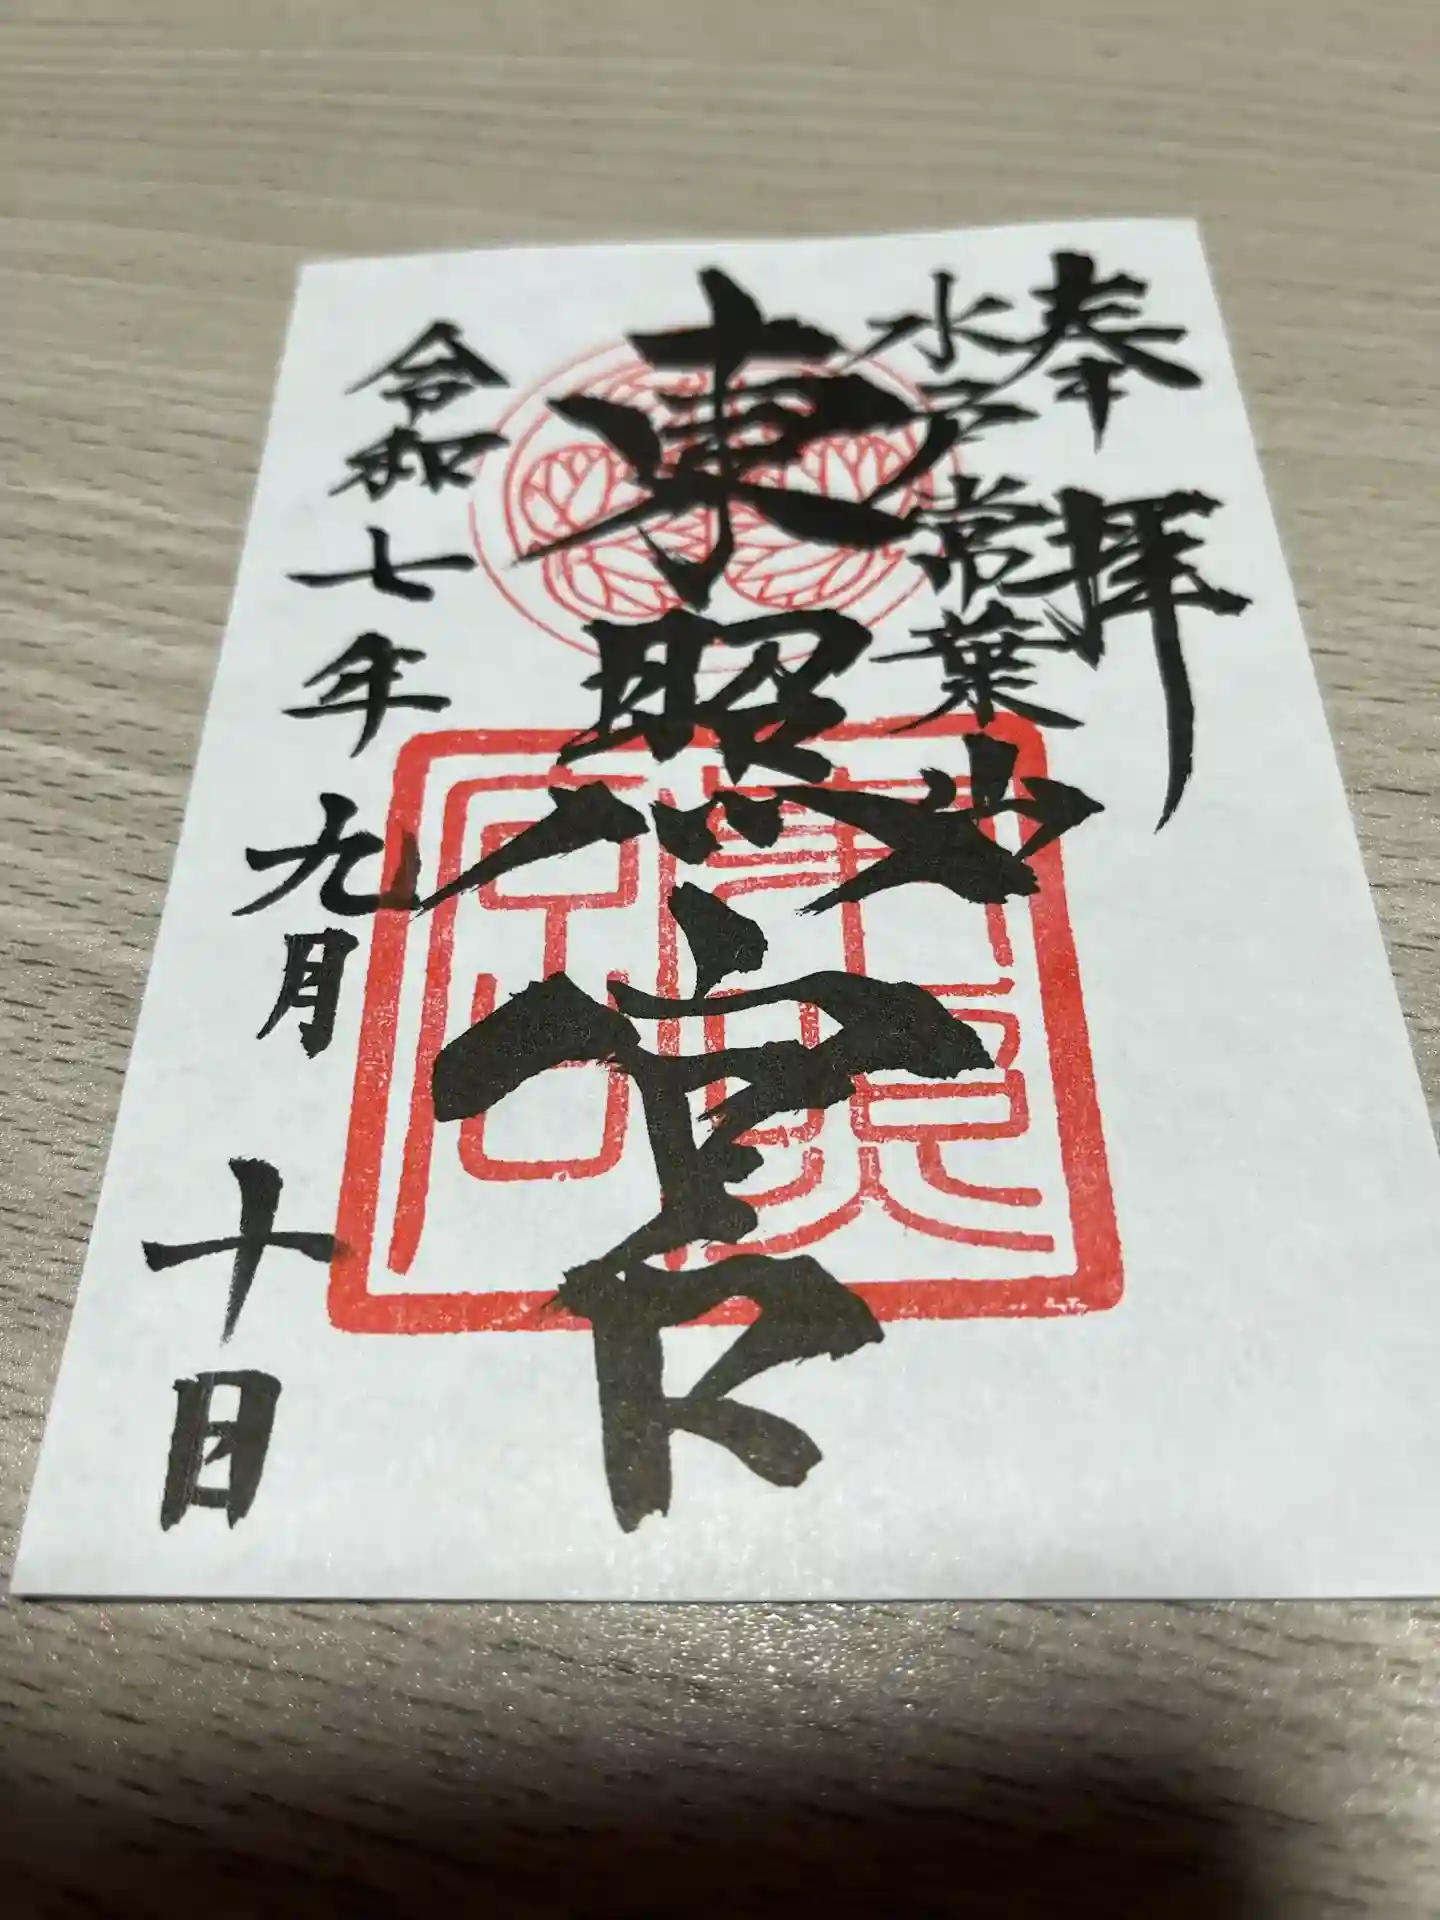 奉拝
水戸常葉山
東照宮
東照宮
令和七年九月十日